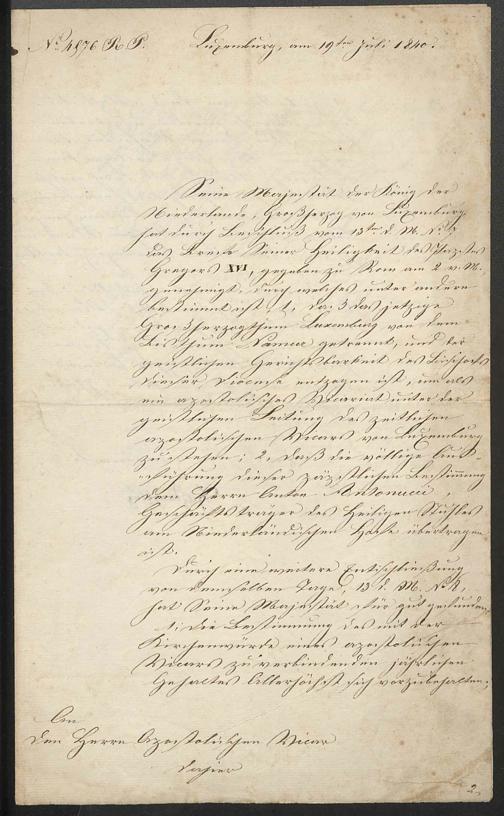 No 4876 R. P. Luxemburg, am 19ten Juli 1840.
Seine Majestät der König der
Niederlande, Großherzog von Luxemburg
hat durch Beschluß vom 13ten d. M. No
das Breve Seiner Heiligkeit des Papstes
Gregors XVI, gegeben zu Rom am 2 v. M.
genehmigt, durch welches unter andern
bestimmt ist, 1, daß das jetzige
Großherzogthum Luxemburg von dem
Bisthum Namur getrennt, und der
geistlichen Gerichtsbarkeit des Bischofs
dieser Diöcese entzogen ist, um als
ein apostolisches Vicariat unter der
geistlichen Leitung des zeitlichen
apostolischen Vicars von Luxemburg
zu stehen; 2, daß die völlige Aus-
führung dieser päpstlichen Bestimmung
dem Herrn Anton Antonucci,
Geschäftsträger des Heiligen Stuhles
am Niederländischen Hofe übertragen
ist.
Durch eine weitere Entschließung
von demselben Tage, 13 d. M. No
hat Seine Majestät für gut gefunden,
1, die Bestimmung des mit der
Kirchenwürde eines apostolischen
Vicars zu verbindenden jährlichen
Gehaltes Allerhöchst sich vorzubehalten;
An
den Herrn Apostolischen Vicar
dahier
2,